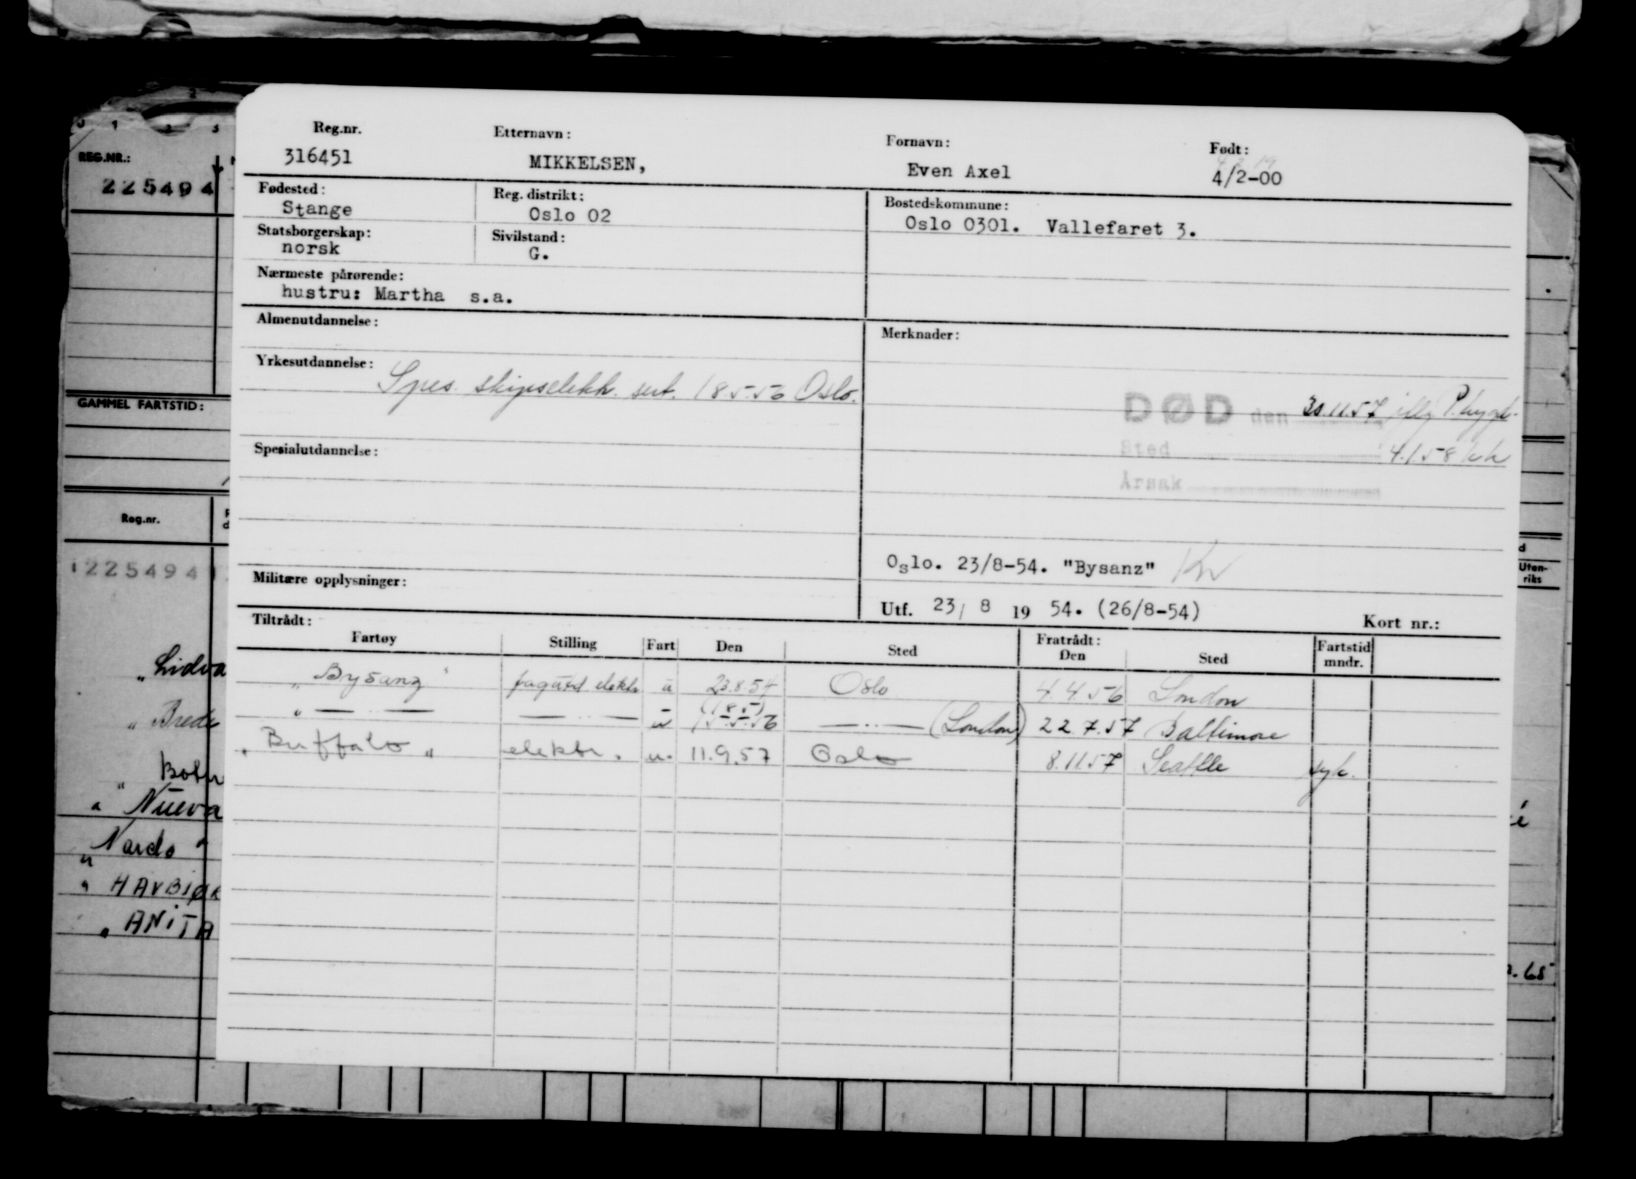 0 1 2 3
REG.NR.:
225494
GAMMEL FARTSTID:
Reg.nr.
1225494
"Lidva
"Brede
"
"Nueva
"Nardo"
"HAVBJØR
"ANITA
Reg.nr.
316451
Etternavn:
MIKKELSEN,
Fornavn:
Even Axel
Født:
4/2-00
Fødested:
Stange
Reg. distrikt:
Oslo 02
Bostedskommune:
Oslo 0301. Vallefaret 3.
Statsborgerskap:
norsk
Sivilstand:
G.
Nærmeste pårørende:
hustru: Martha s.a.
Almenutdannelse:
Merknader:
Yrkesutdannelse:
Spes. skipselektr. sert. 18 5-56 Oslo.
DØD den 30.11.57
Sted 4.1 58
Årsak
Spesialutdannelse:
Oslo. 23/8-54. "Bysanz"
Militære opplysninger:
Utf. 23/ 8 19 54. (26/8-54)
Kort nr.:
Tiltrådt:
Fartøy Stilling Fart Den Sted Fratrådt: Den Sted Fartstid mndr.
"Bysanz" elektr. u 23.8.54 Oslo 4.4.56 London
" — — — — u (18.5) 15.5.56 — " — (London) 22.7.57 Baltimore
"Buffalo" elektr. u. 11.9.57 Oslo 8.11.57 Seattle syk.
d
Uten-
riks
. 65